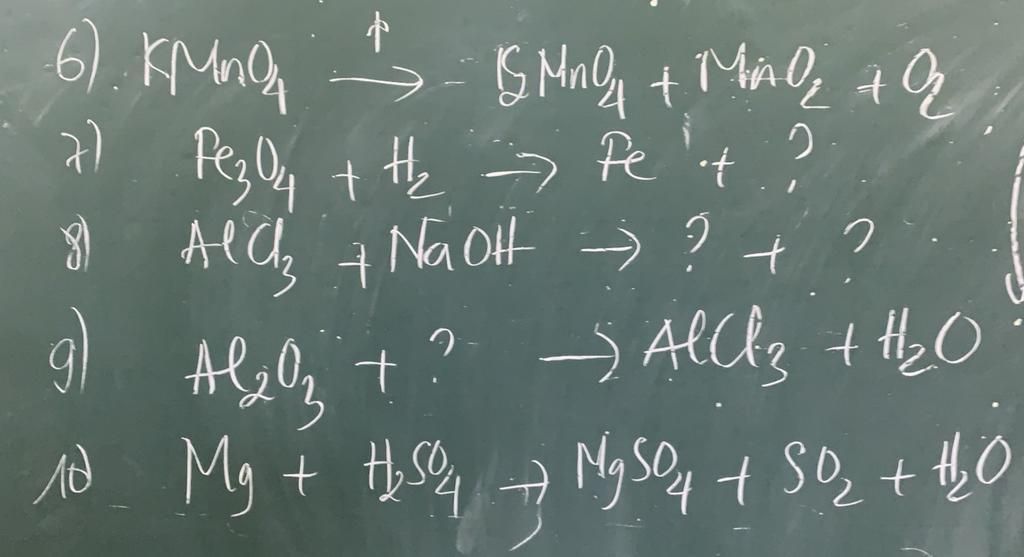 6) KMnO₄ →(↑) K₂MnO₄ + MnO₂ + O₂
7) Fe₃O₄ + H₂ → Fe + ?
8) AlCl₃ + NaOH → ? + ?
9) Al₂O₃ + ? → AlCl₃ + H₂O
10) Mg + H₂SO₄ → MgSO₄ + SO₂ + H₂O